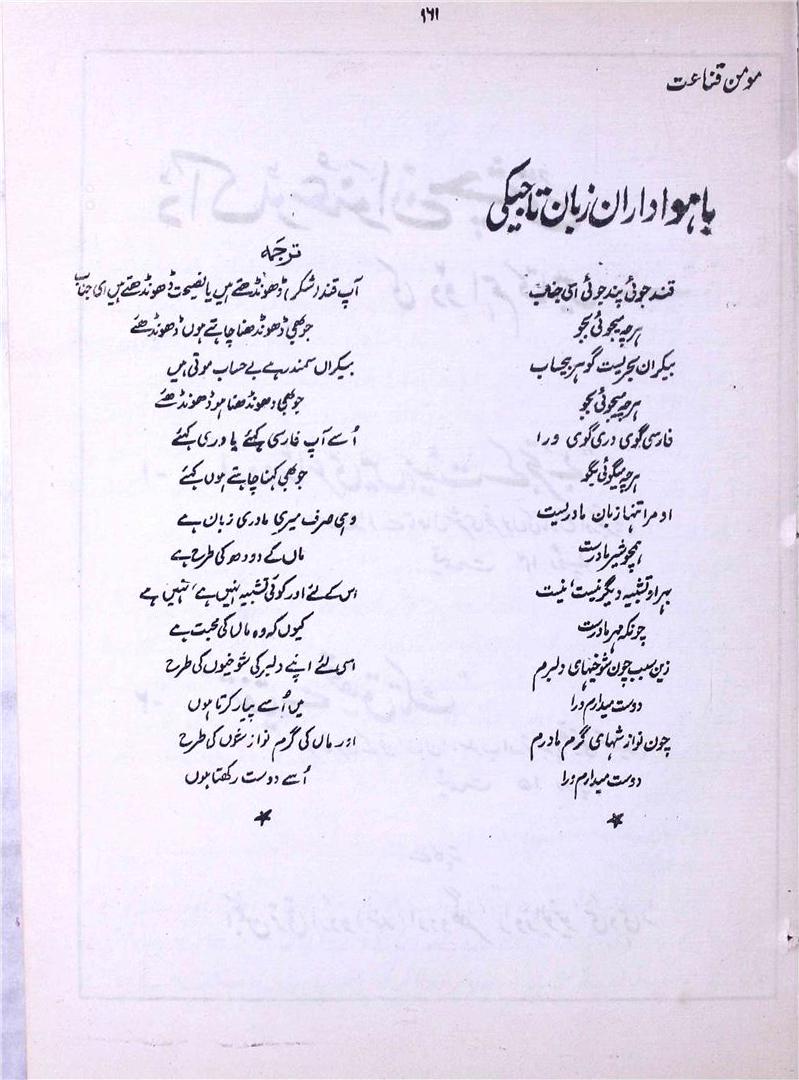 ۹۶۱
مومن قناعت
باہواداران زبان تاجیکی
قند جوئی پند جوئی ای جناب
ہرچہ میجوئی بجو
بیکران بحریست گوہر بیحساب
ہرچہ میجوئی بجو
فارسی گوی دری گوی ورا
ہرچہ میگوئی بگو
او مرا تنہا زبان مادریست
ہمچو شیر مادرست
بہر او تشبیہ دیگر نیست، نیست
چونکہ مہر مادرست
زین سبب چون شوخیہای دلبرم
دوست میدارم ورا
چون نوازشہای گرم مادرم
دوست میدارم ورا
ترجمہ
آپ قند (شکر) ڈھونڈھتے ہیں یا نصیحت ڈھونڈھتے ہیں ای جناب
جو بھی ڈھونڈھنا چاہتے ہوں ڈھونڈھئے
بیکراں سمندر ہے بے حساب موتی ہیں
جو بھی ڈھونڈھنا ہو ڈھونڈھئے
اُسے آپ فارسی کہئے یا دری کہئے
جو بھی کہنا چاہتے ہوں کہئے
وہی صرف میری مادری زبان ہے
ماں کے دودھ کی طرح ہے
اس کے لئے اور کوئی تشبیہ نہیں ہے، نہیں ہے
کیوں کہ وہ ماں کی محبت ہے
اسی لئے اپنے دلبر کی شوخیوں کی طرح
میں اُسے پیار کرتا ہوں
اور ماں کی گرم نوازشوں کی طرح
اُسے دوست رکھتا ہوں